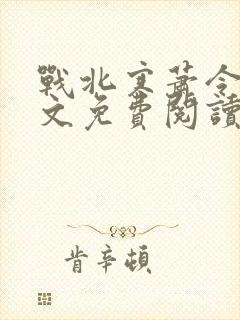 戰北寒蕭令
文免費閱讀
肯辛頓